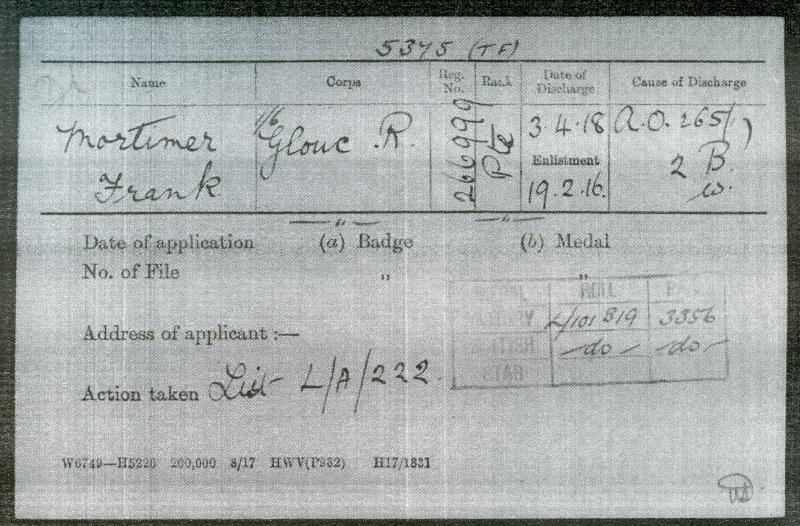 5375 (TF)
Name Corps Reg. No. Rank Date of Discharge Cause of Discharge
Mortimer 1/6 Glouc. R. 266999 Pte 3.4.18 A.O. 265/17
Frank Enlistment 2 B.
19.2.16. w.
— " — — " —
Date of application (a) Badge (b) Medal
No. of File " "
Address of applicant :—
ROLL
VICTORY L/101 B19 3356
BRITISH —do— —do—
STAR
Action taken List L/A/222.
W6749—H5226 200,000 8/17 HWV(P932) H17/1831